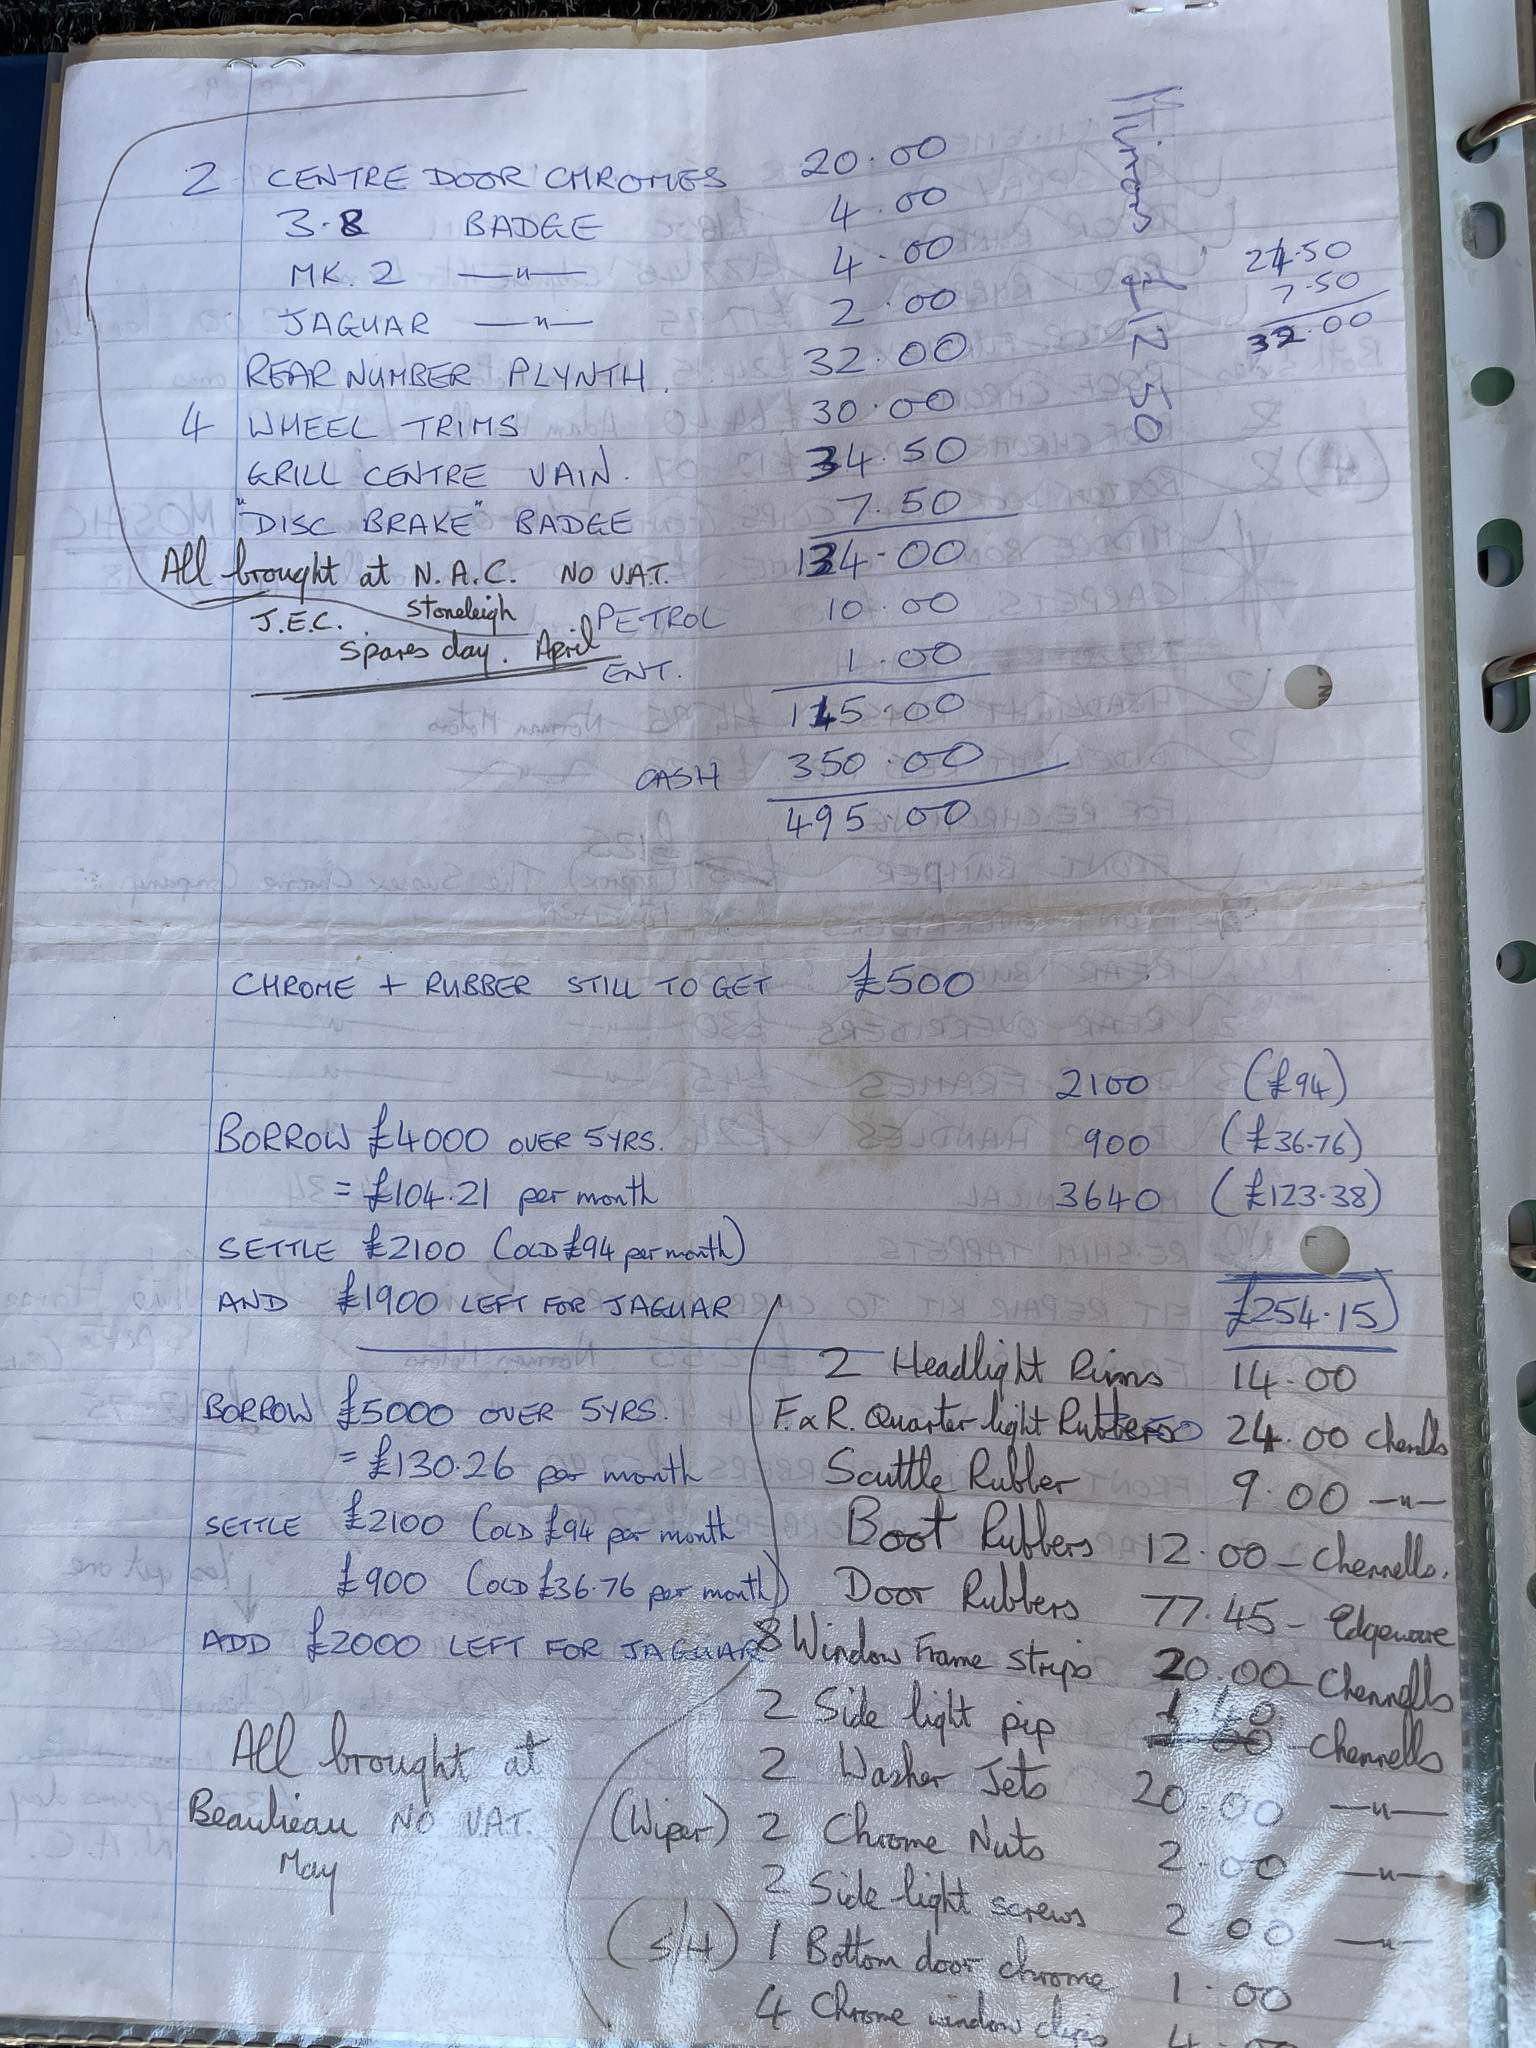 2 CENTRE DOOR CHROMES 20.00
3.8 BADGE 4.00
MK. 2 —"— 4.00
JAGUAR —"— 2.00
REAR NUMBER PLYNTH. 32.00
4 WHEEL TRIMS 30.00
GRILL CENTRE VAIN. 34.50
"DISC BRAKE" BADGE 7.50
134.00
All brought at N.A.C. NO V.A.T.
J.E.C. Stoneleigh
Spares day. April
PETROL 10.00
ENT. 1.00
145.00
CASH 350.00
495.00
Mirrors £12 50
24.50
7.50
32.00
CHROME + RUBBER STILL TO GET £500
2100 (£94)
900 (£36.76)
3640 (£123.38)
£254.15)
BORROW £4000 OVER 5YRS.
= £104.21 per month
SETTLE £2100 (OLD £94 per month)
AND £1900 LEFT FOR JAGUAR
BORROW £5000 OVER 5YRS.
= £130.26 per month
SETTLE £2100 (OLD £94 per month
£900 (OLD £36.76 per month)
ADD £2000 LEFT FOR JAGUAR
All brought at
Beaulieau NO V.A.T.
May
2 Headlight Rims 14.00
F. & R. Quarter light Rubbers 24.00 Chenells
Scuttle Rubber 9.00 —"—
Boot Rubbers 12.00 – Chennells.
Door Rubbers 77.45 – Edgeware
8 Window Frame strips 20.00 – Chennells
2 Side light pip 1.40 – Chennells
2 Washer Jets 20.00 —"—
(Wiper) 2 Chrome Nuts 2.00 —"—
2 Side light screws 2.00 —"—
(S/H) 1 Bottom door chrome 1.00
4 Chrome window clips 4.00